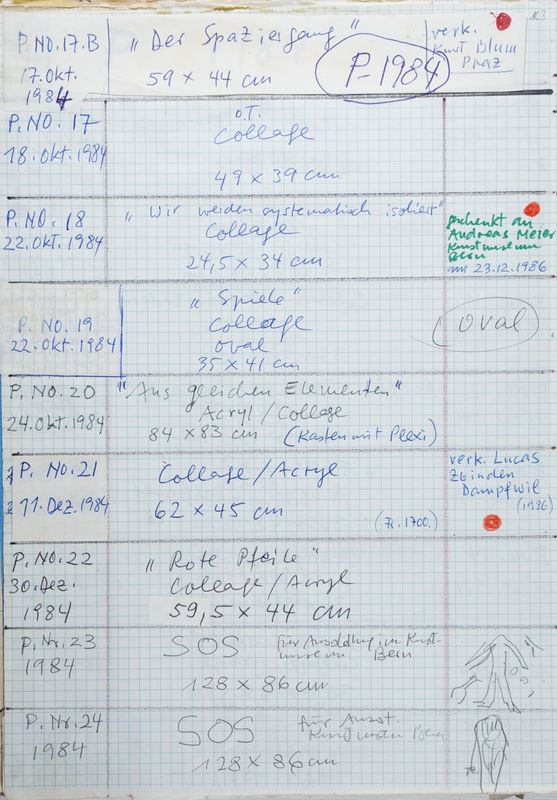 103
P. NO. 17.B
17. Okt.
1984
„Der Spaziergang"
59 x 44 cm
P-1984
verk.
Kurt Blum
Praz
P. NO. 17
18. Okt. 1984
o.T.
Collage
49 x 39 cm
P. NO. 18
22. Okt. 1984
„Wir werden systematisch isoliert"
Collage
24,5 x 34 cm
geschenkt an
Andreas Meier
Kunstmuseum
Bern
am 23.12.1986
P. NO. 19
22. Okt. 1984
„Spiele"
Collage
oval
35 x 41 cm
oval
P. NO. 20
24. Okt. 1984
"Aus gleichen Elementen"
Acryl/Collage
84 x 83 cm (Kasten mit Plexi)
P. NO. 21
11. Dez. 1984
Collage/Acryl
62 x 45 cm
(Fr. 1700.)
verk. Lucas
Zbinden
Dampfwil
(1986)
P. NO. 22
30. Dez.
1984
„Rote Pfeile"
Collage/Acryl
59,5 x 44 cm
P. Nr. 23
1984
SOS
für Ausstellung im Kunst-
museum Bern
128 x 86 cm
P. Nr. 24
1984
SOS
für Ausst.
Kunstmuseum Bern
128 x 86 cm